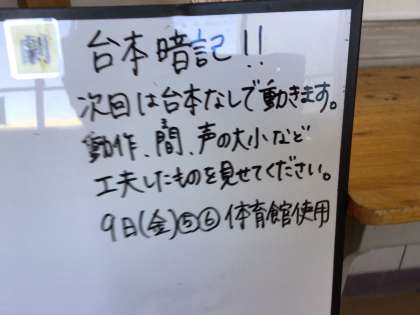 劇 台本暗記!!
次回は台本なしで動きます。
動作、間、声の大小など
工夫したものを見せてください。
9日(金)⑤⑥体育館使用